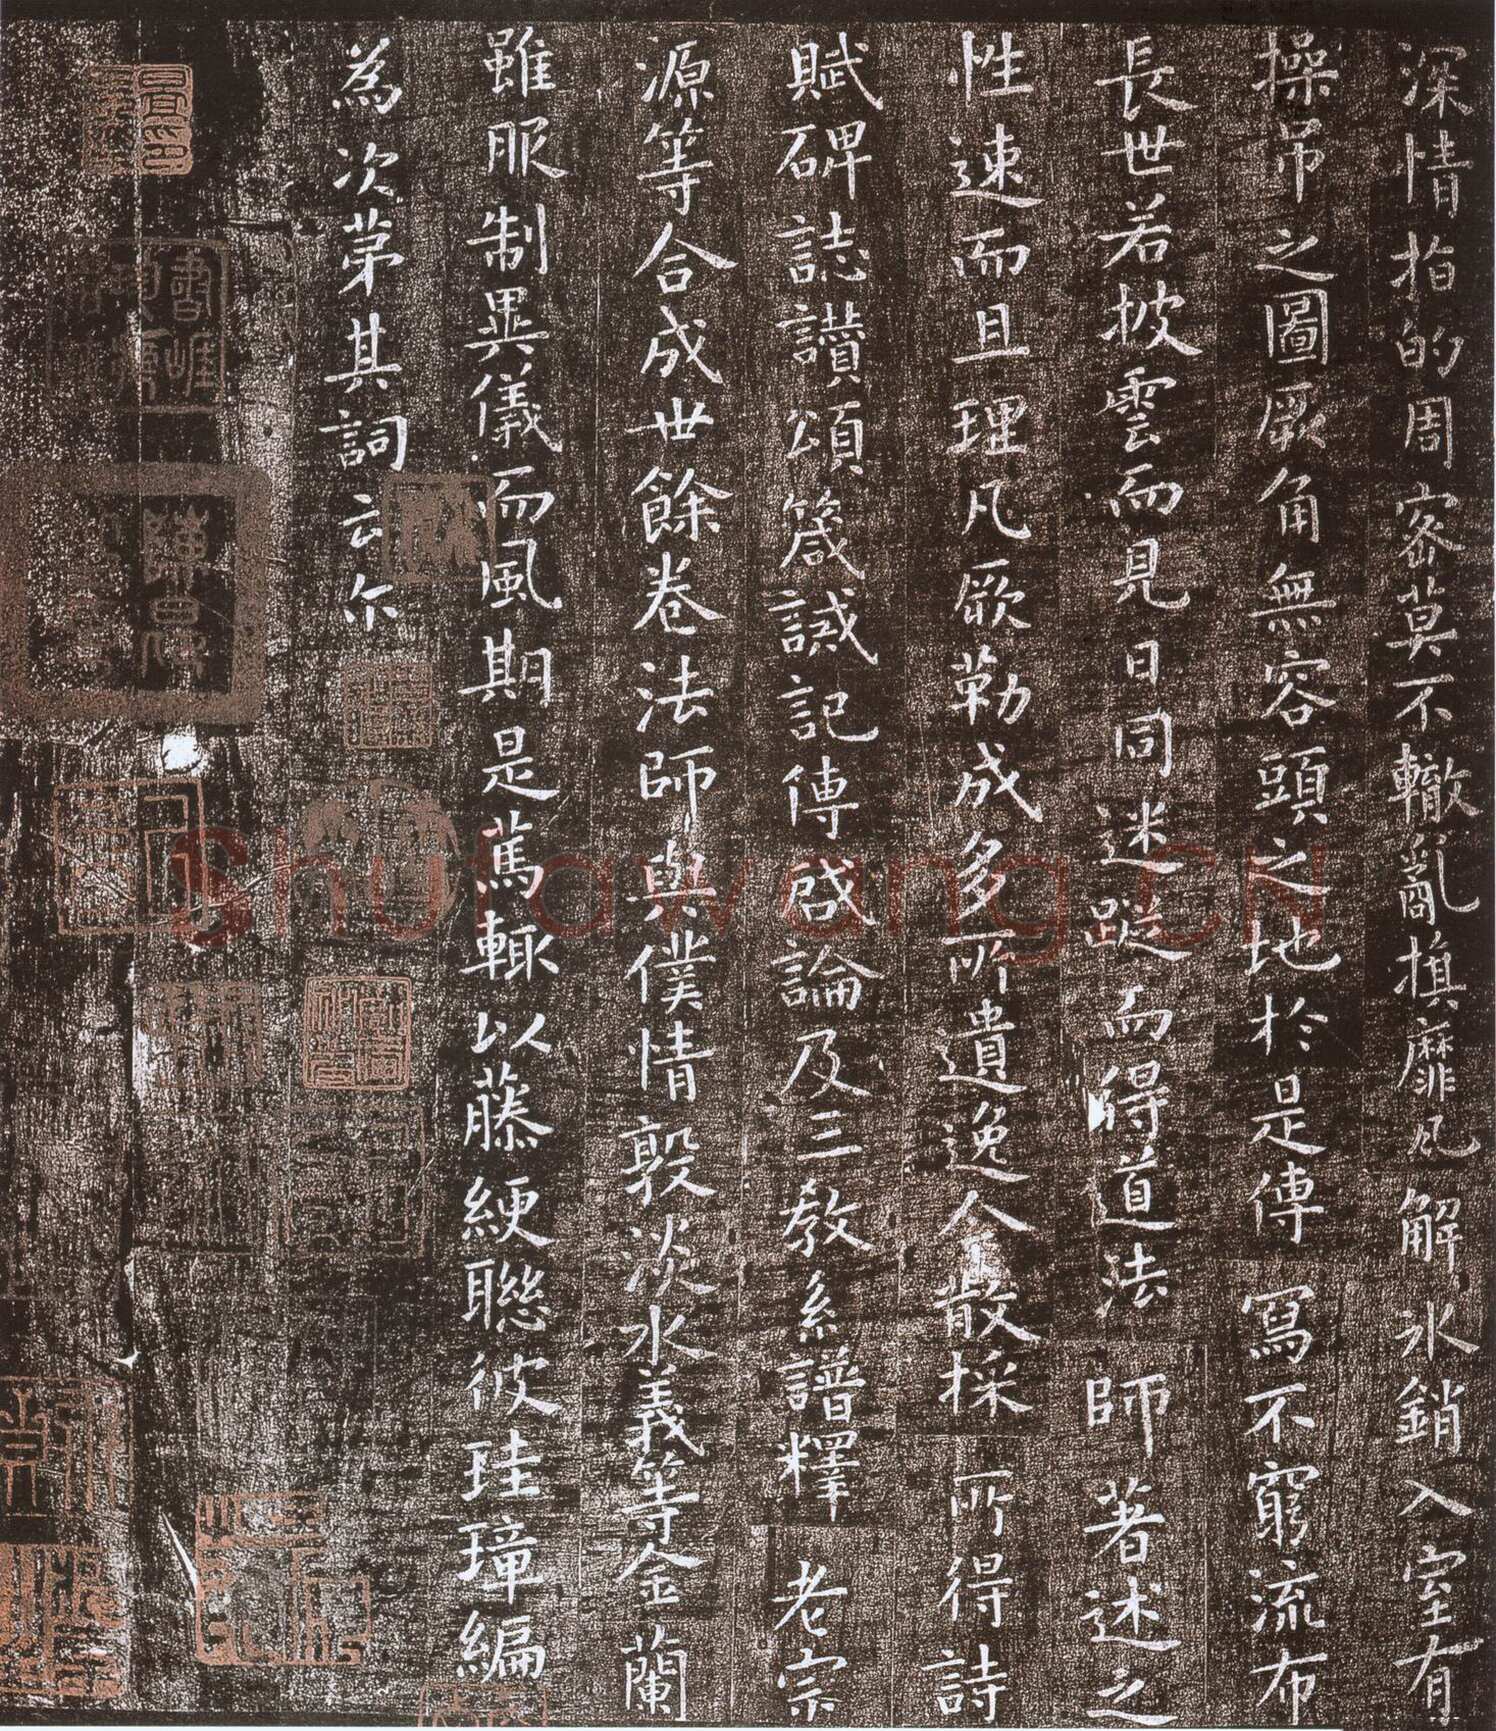 深情指的周密莫不轍亂旗靡凡解氷銷入室有
操吊之圖厥角無容頭之地於是傳寫不窮流布
長世若披雲而見日同迷蹤而得道法師著述之
性速而且理凡厥勒成多所遺逸人散採所得詩
賦碑誌讚頌箴誡記傳啓論及三教系譜釋老宗
源等合成世餘卷法師與僕情敦淡水義等金蘭
雖服制異儀而風期是篤輒以藤綆聯彼珪璋編
為次第其詞云尔
Shufawang.CN